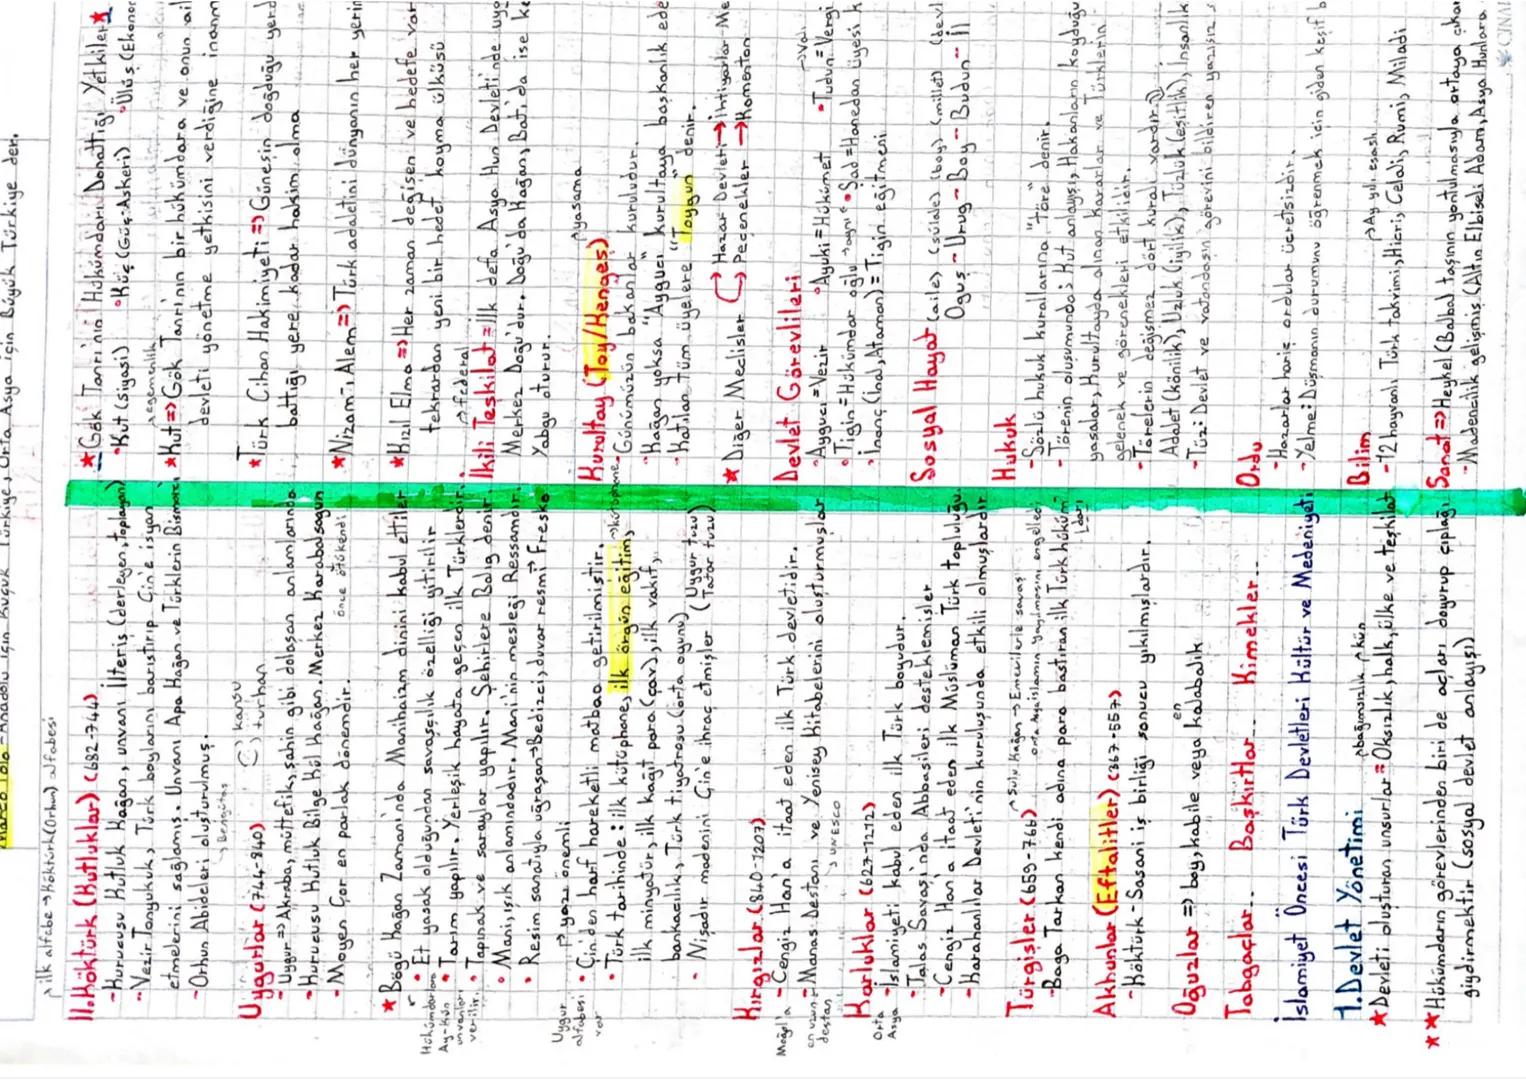 Marco Polo - Anadolu için Küçük Türkiye, Orta Asya için Büyük Türkiye der.
ilk alfabe → Köktürk (Orhun) alfabesi
II. Köktürk (Kutluklar) (682-744)
- Kurucusu Kutluk Kağan, unvanı İlteriş (derleyen, toplayan)
- Vezir Tonyukuk, Türk boylarını barıştırıp Çin'e isyan
etmelerini sağlamış. Unvanı Apa Kağan ve Türklerin Bismarcı
- Orhun Abideleri oluşturulmuş.
→ Bengütaş
Uygurlar (744-840)
karısı
turhan
- Uygur ⇒ Akraba, müttefik, şahin gibi dolaşan anlamlarında
- Kurucusu Kutluk Bilge Kül Kağan. Merkez Karabalsagun
önce ötükendi
- Moyen Çor en parlak dönemdir.
★ Bögü Kağan Zamanı'nda Manihaizm dinini kabul ettiler
Hükümdarların Ay-Kün unvanları verilir.
• Et yasak olduğundan savaşçılık özelliği yitirilir
• Tarım yapılır. Yerleşik hayata geçen ilk Türklerdir.
• Tapınak ve saraylar yapılır. Şehirlere Balıg denir.
• Mani, ışık anlamındadır. Mani'nin mesleği Ressamdır.
• Resim sanatıyla uğraşan → Bedizci, duvar resmi → Fresko
yazı önemli
Uygur alfabesi var
• Çin'den harf hareketli matbaa getirilmiştir.
• Türk tarihinde: ilk kütüphane, ilk örgün eğitim, → kütüphane
ilk minyatür, ilk kağıt para (çav), ilk vakıf,
bankacılık, Türk tiyatrosu (orta oyunu)
- Nişadır madenini Çin'e ihraç etmişler (Uygur tuzu)
(Tatar tuzu)
Kırgızlar (840-1207)
Moğol'a - Cengiz Han'a itaat eden ilk Türk devletidir.
en uzun destan - Manas Destanı ve Yenisey Kitabelerini oluşturmuşlar
→ UNESCO
Karluklar (627-1212)
Orta Asya - İslamiyeti kabul eden ilk Türk boyudur.
- Talas Savaşı'nda Abbasileri desteklemişler
- Cengiz Han'a itaat eden ilk Müslüman Türk topluluğu.
- Karahanlılar Devleti'nin kuruluşunda etkili olmuşlardır
Türgişler (659-766)
→ Sulu Kağan → Emevilerle savaş
orta Asya islamın yayılmasını engelledi
- Baga Tarkan kendi adına para bastıran ilk Türk hüküm-
darı
Akhunlar (Eftalitler) (367-557)
- Köktürk - Sasani iş birliği sonucu yıkılmışlardır.
Oğuzlar ⇒ boy, kabile veya kalabalık
en
Tabgaçlar.. Başkırtlar.. Kimekler..
İslamiyet Öncesi Türk Devletleri Kültür ve Medeniyeti
1. Devlet Yönetimi
bağımsızlık kün
★ Devleti oluşturan unsurlar = Oksızlık, halk, ülke ve teşkilat
★★ Hükümdarın görevlerinden biri de açları doyurup çıplağı
giydirmektir (sosyal devlet anlayışı)
★ Gök Tanrı'nın Hükümdarı Donattığı Yetkiler ★
• Kut (siyasi) • Küç (Güç-Askeri) • Ülüş (Ekonor
egemenlik
★ Kut ⇒ Gök Tanrı'nın bir hükümdara ve onun ail
devleti yönetme yetkisini verdiğine inanm
★ Türk Cihan Hakimiyeti ⇒ Güneşin doğduğu yerd
battığı yere kadar hakim olma
★ Nizam-ı Alem ⇒ Türk adaletini dünyanın her yerin
★ Kızıl Elma ⇒ Her zaman değişen ve hedefe var
tekrardan yeni bir hedef koyma ülküsü
→ federal
İkili Teşkilat = ilk defa Asya Hun Devleti'nde uyg
Merkez Doğu'dur. Doğu'da Kağan, Batı'da ise ka
Yabgu oturur.
Kurultay (Toy/Kengeş)
yasama
Günümüzün bakanlar kuruludur.
- Kağan yoksa "Aygucı" kurultaya başkanlık ede
- Katılan Tüm üyelere "Toygun" denir.
★ Diğer Meclisler → Hazar Devleti → İhtiyarlar Me
→ Peçenekler → Komenton
Devlet Görevlileri
• Aygucı = Vezir • Ayuki = Hükümet • Tudun = Vergi
→ Vali
• Tigin = Hükümdar oğlu • Şad = Hanedan üyesi k
• İnanç (Lala, Ataman) = Tigin eğitmeni
Sosyal Hayat
(aile) (sülale) (boy) (millet) (devl
Oguş - Urug - Boy - Budun - İl
Hukuk
- Sözlü hukuk kurallarına "töre" denir.
- Törenin oluşumunda; Kut anlayışı, Hakanların koyduğu
yasalar, Kurultayda alınan kararlar ve Türklerin
gelenek ve görenekleri etkilidir.
- Törelerin değişmez dört kuralı vardır.
Adalet (könilik), Uzluk (iyilik), Tüzlük (eşitlik), İnsanlık
- Tüzi Devlet ve vatandaşın görevini bildiren yazısız
Ordu
- Hazarlar hariç ordular ücretsizdir.
- Yelme: Düşmanın durumunu öğrenmek için giden keşif b
Bilim
→ Ay yılı esaslı
- 12 hayvanlı Türk takvimi, Hicri, Celali, Rumi, Miladi
Sanat ⇒ Heykel (Balbal taşının yontulmasıyla ortaya çıkar
- Madencilik gelişmiş (Altın Elbiseli Adam, Asya Hunlara